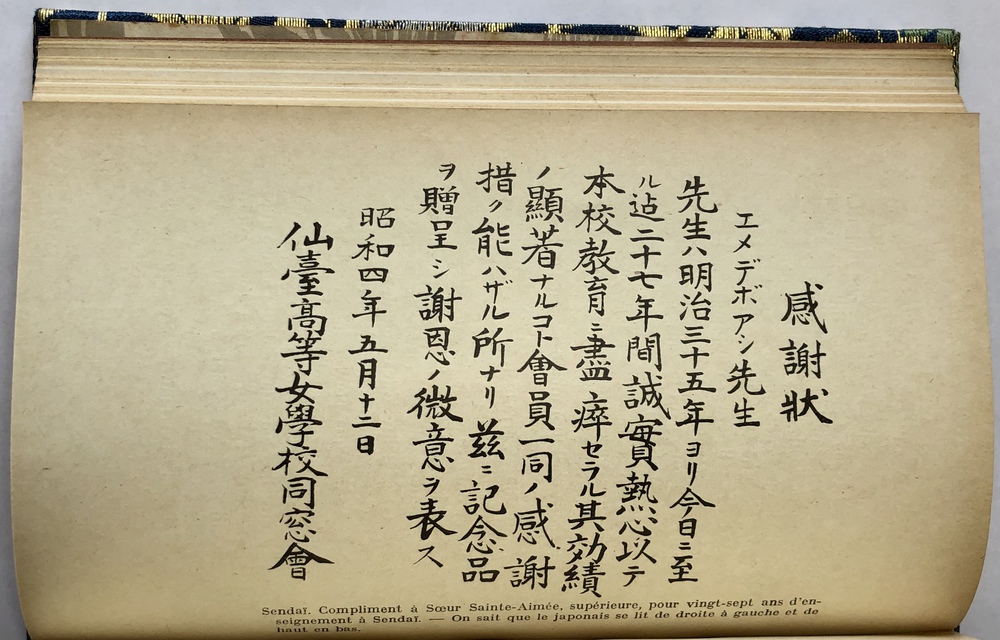 感謝狀
エメデボアン先生
先生ハ明治三十五年ヨリ今日ニ至
ル迠二十七年間誠實熱心以テ
本校教育ニ盡瘁セラル其効績
ノ顯著ナルコト會員一同ノ感謝
措ク能ハザル所ナリ茲ニ記念品
ヲ贈呈シ謝恩ノ微意ヲ表ス
昭和四年五月十二日
仙臺高等女學校同窓會
Sendaï. Compliment à Sœur Sainte-Aimée, supérieure, pour vingt-sept ans d'en-
seignement à Sendaï. — On sait que le japonais se lit de droite à gauche et de
haut en bas.